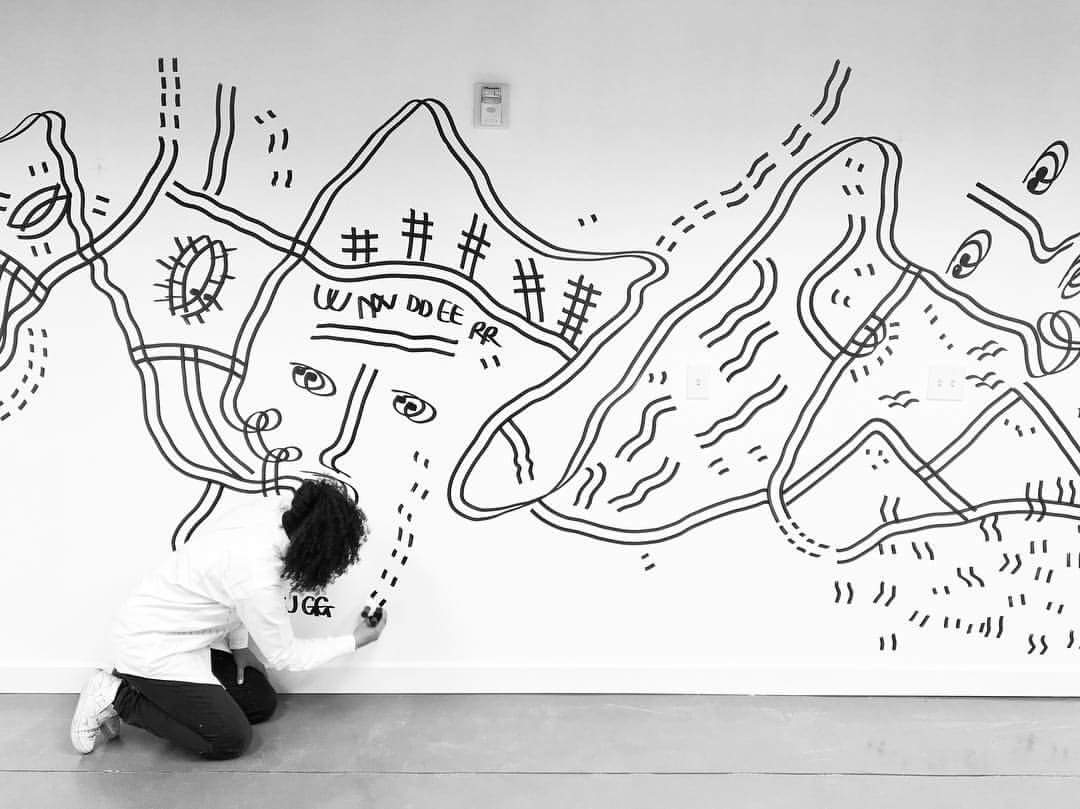 UU NN DD EE RR
UGG